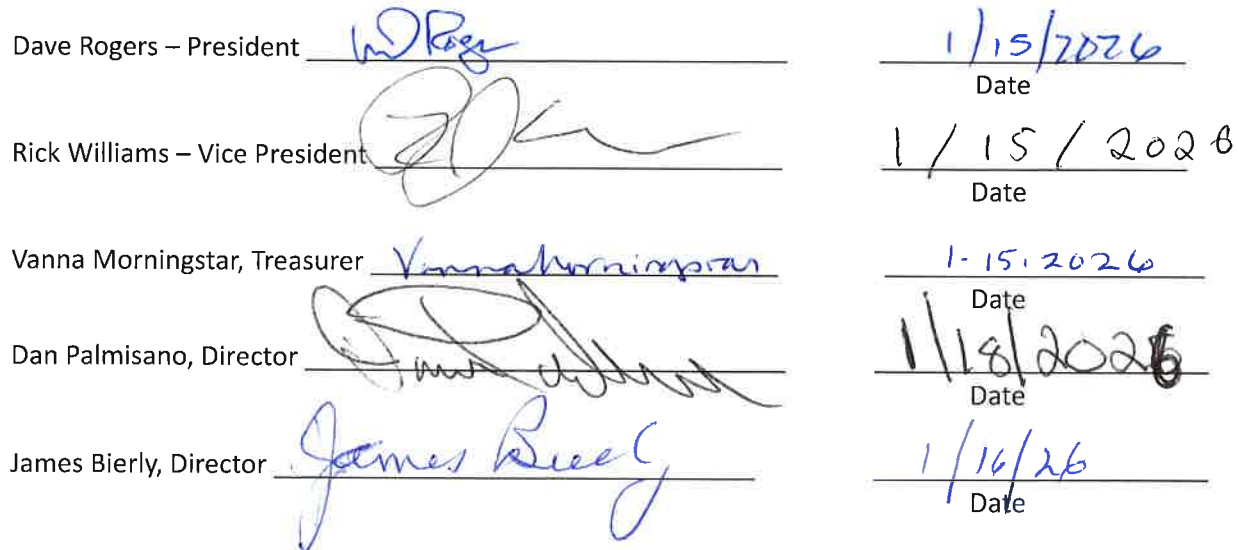 Dave Rogers – President 1/15/2026
Date
Rick Williams – Vice President 1/15/2026
Date
Vanna Morningstar, Treasurer Vanna Morningstar 1-15-2026
Date
Dan Palmisano, Director 1/18/2026
Date
James Bierly, Director James 1/16/26
Date